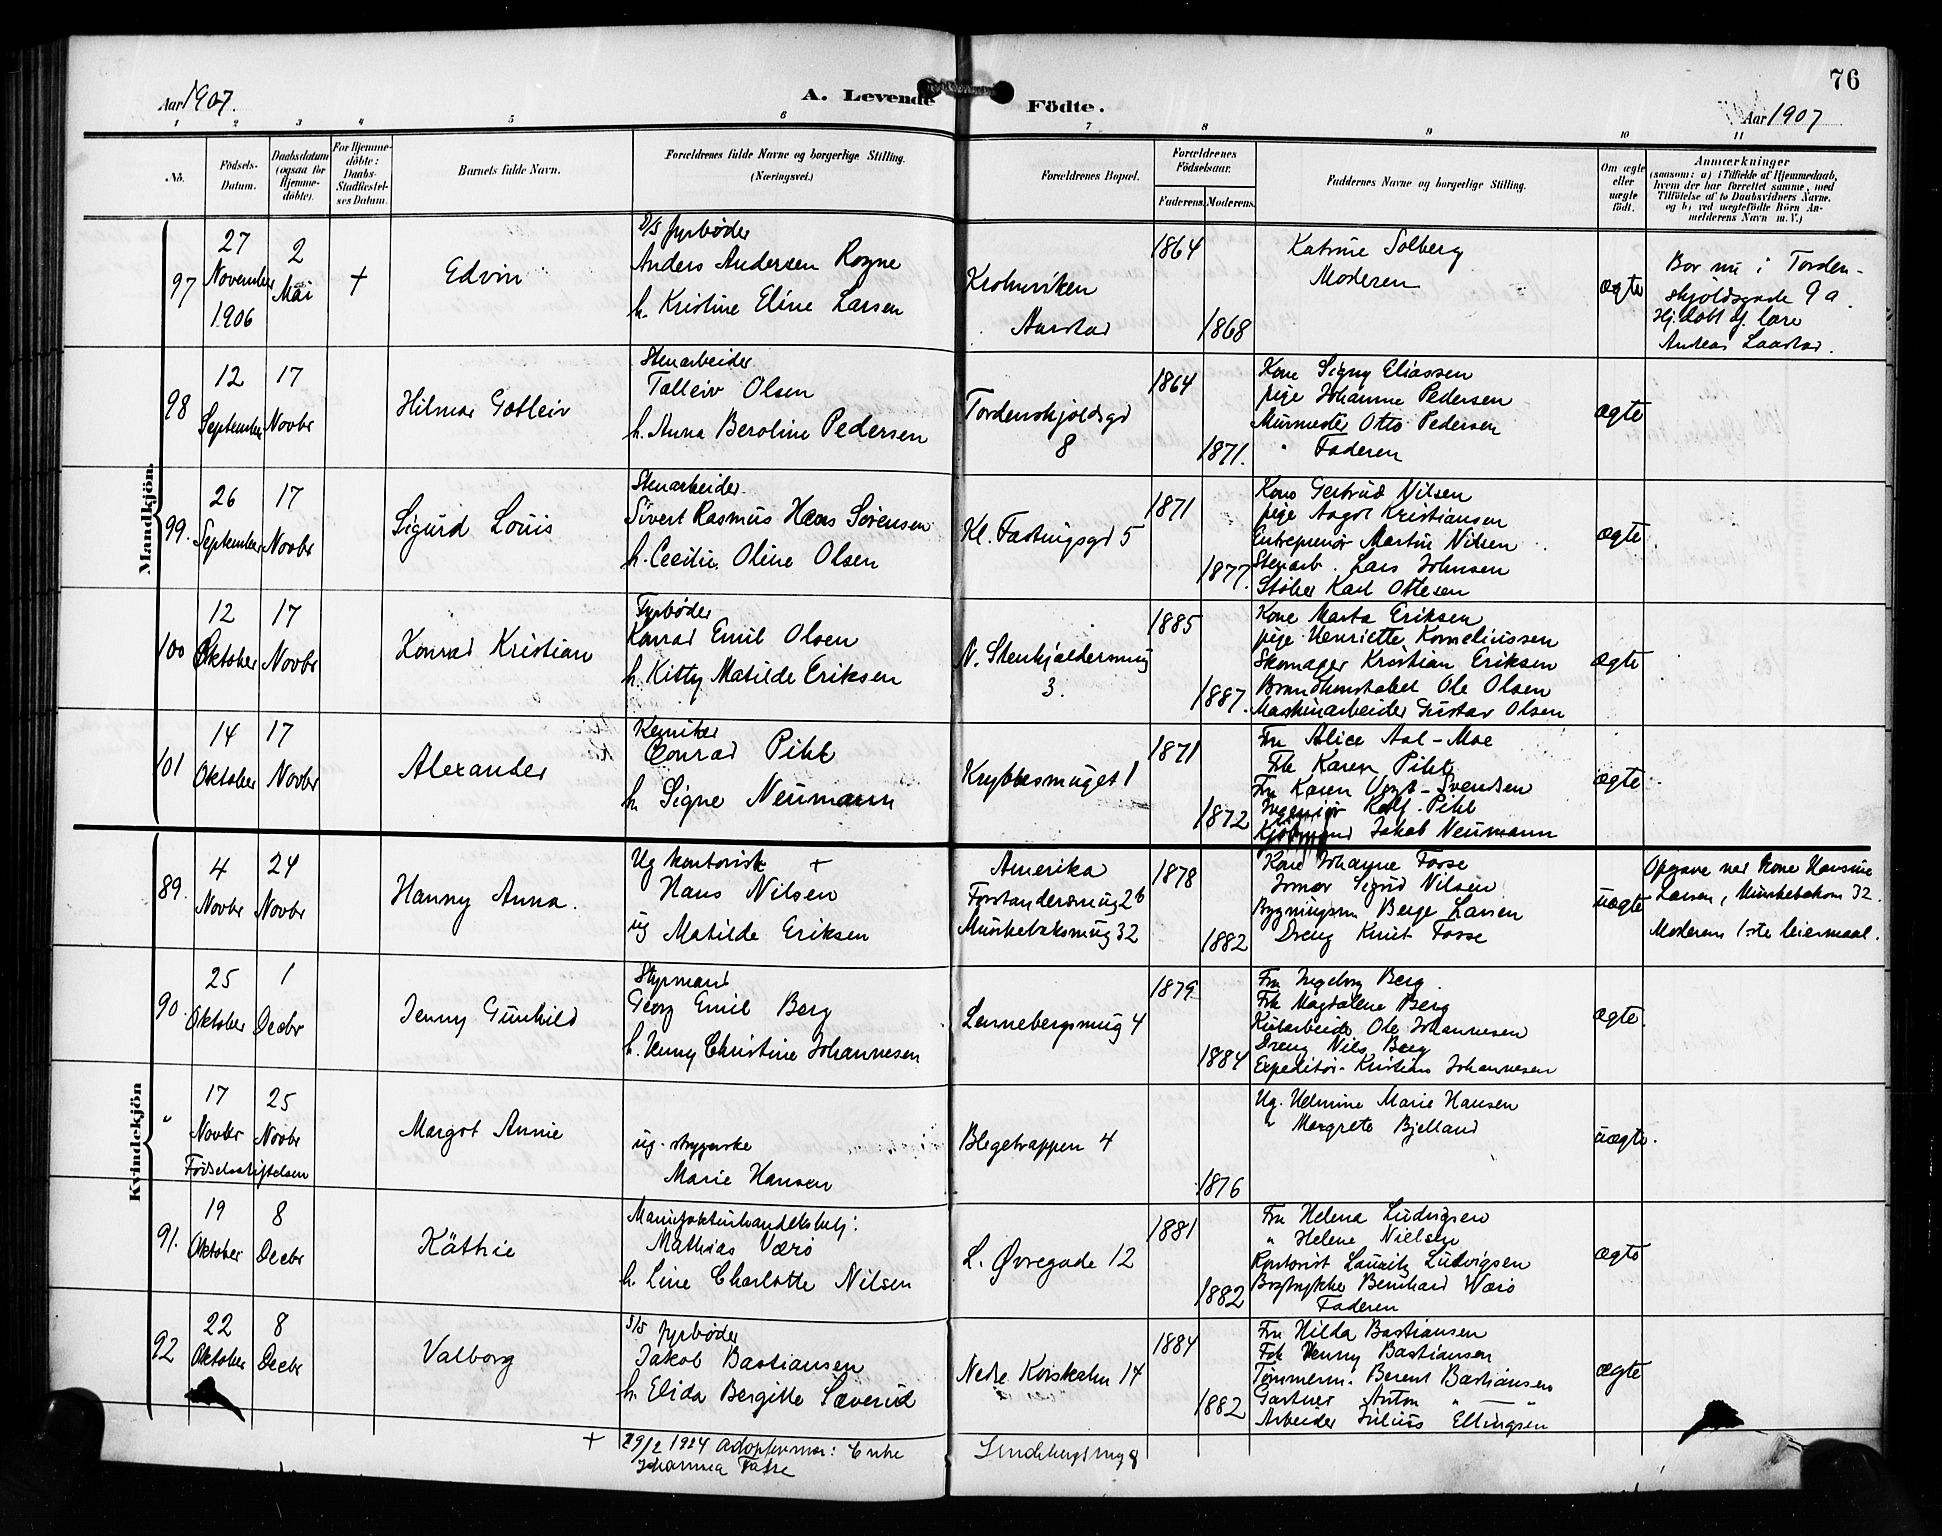 76
Aar 1907.
A. Levende Födte.
Aar 1907
1 2 3 4 5 6 7 8 9 10 11
No.
Födsels-Datum.
Daabsdatum (ogsaa for Hjemme-döbte).
For Hjemme-döbte: Daabs-Stadfæstel-ses Datum.
Barnets fulde Navn.
Forældrenes fulde Navne og borgerlige Stilling.
(Næringsvei.)
Forældrenes Bopæl.
Forældrenes Födselsaar.
Faderens. Moderens.
Faddernes Navne og borgerlige Stilling.
Om ægte eller uægte födt.
Anmærkninger
(saasom: a) i Tilfælde af Hjemmedaab,
hvem der har forrettet samme, med
Tilföielse af to Daabsvidners Navne,
og b) ved uægtefödte Börn An-
melderens Navn m. V.)
Mandkjön.
97
27 November 1906
2 Mai
+
Edvin
D/S fyrbøder
Anders Andersen Rogne
h. Kristine Eline Larsen
Krohnviken
Aarstad
1864
1868
Katrine Solberg
Moderen
ægte
Bor nu i Torden-
skjoldsgade 9a.
Hj.døbt af lærer
Andreas Laastad.
98
12 September
17 Novbr
Hilmar Gotleiv
Stenarbeider
Talleiv Olsen
h. Anna Beroline Pedersen
Tordenskjoldsgd
8
1864
1871.
Kone Signy Eliassen
pige Johanne Pedersen
Murmester Otto Pedersen
" Faderen
ægte
99.
26 September
17 Novbr
Sigurd Louis
Stenarbeider.
Sivert Rasmus Hans Sørensen
h. Cecilie Oline Olsen
Kl. Fastingsgd 5
1871
1877.
Kone Gertrud Nilsen
pige Aagot Kristiansen
Entreprenør Martin Nilsen
Stenarb. Lars Johnsen
Støber Karl Ottesen
ægte
100
12 Oktober
17 Novbr
Konrad Kristian
Fyrbøder
Konrad Emil Olsen
h. Kitty Matilde Eriksen
N. Stenkjeldersmug
3.
1885
1887.
Kone Marta Eriksen
pige Henriette Korneliussen
Skomager Kristian Eriksen
Brandkonstabel Ole Olsen
Maskinarbeider Gustav Olsen
ægte
101
14 Oktober
17 Novbr
Alexander
Kemiker
Conrad Pihl
h. Signe Neumann
Krybbesmuget 1
1871
1872
Fru Alice Aal-Moe
Frk Karen Pihl
Fru Karen Vogt-Svendsen
Ingeniør Rolf Pihl
Kjøbmand Jakob Neumann
ægte
Kvindekjön
89.
4 Novbr
24 Novbr
Hanny Anna.
Ug kontorist +
Hans Nilsen
ug Matilde Eriksen
Amerika
Forstandersmug 2b
Munkebæksmug 32
1878
1882
Kone Johanne Fosse
Jomfr Sigrid Nilsen
Bygningssn Berge Larsen
Dreng Knut Fosse
uægte
Opgave ved Kone Hansine
Larsen, Munkebæksm 32.
Moderens 1ste leiermaal.
90.
25 Oktober
1 Decbr
Jenny Gunhild
Styrmand
Georg Emil Berg
h. Jenny Christine Johannesen
Lennebergsmug 4
1879
1884
Fru Ingeborg Berg
Frk Magdalene Berg
Kularbeider Ole Johannesen
Dreng Nils Berg
Expeditør Kristian Johannesen
ægte
"
17 Novbr
25 Novbr
Fødselsstiftelsen
Margot Annie
ug. strygerske
Marie Hansen
Blegetrappen 4
1876
Ug. Helmine Marie Hansen
" Margrete Bjelland
uægte.
91.
19 Oktober
8 Decbr
Käthie
Manufakturhandelsbetj.
Mathias Værø
h. Line Charlotte Nilsen
L. Øvregade 12
1881
1882
Fru Helena Ludvigsen
" Helene Nielsen
Kontorist Lauritz Ludvigsen
Bogtrykker Bernhard Værø
Faderen
ægte
92
22 Oktober
8 Decbr
Valborg
S/S fyrbøder
Jakob Bastiansen
h. Elida Bergitte Sæverud
Nedre Korskalm 14
1884
1882
Fru Hilda Bastiansen
Frk Henny Bastiansen
Tømmerm. Berent Bastiansen
Gartner Anton " — "
Arbeider Julius Ellingsen
ægte
+ 29/2 1924 Adoptivmor: Enke
Johanna Fosse
Lindebergsmug 8